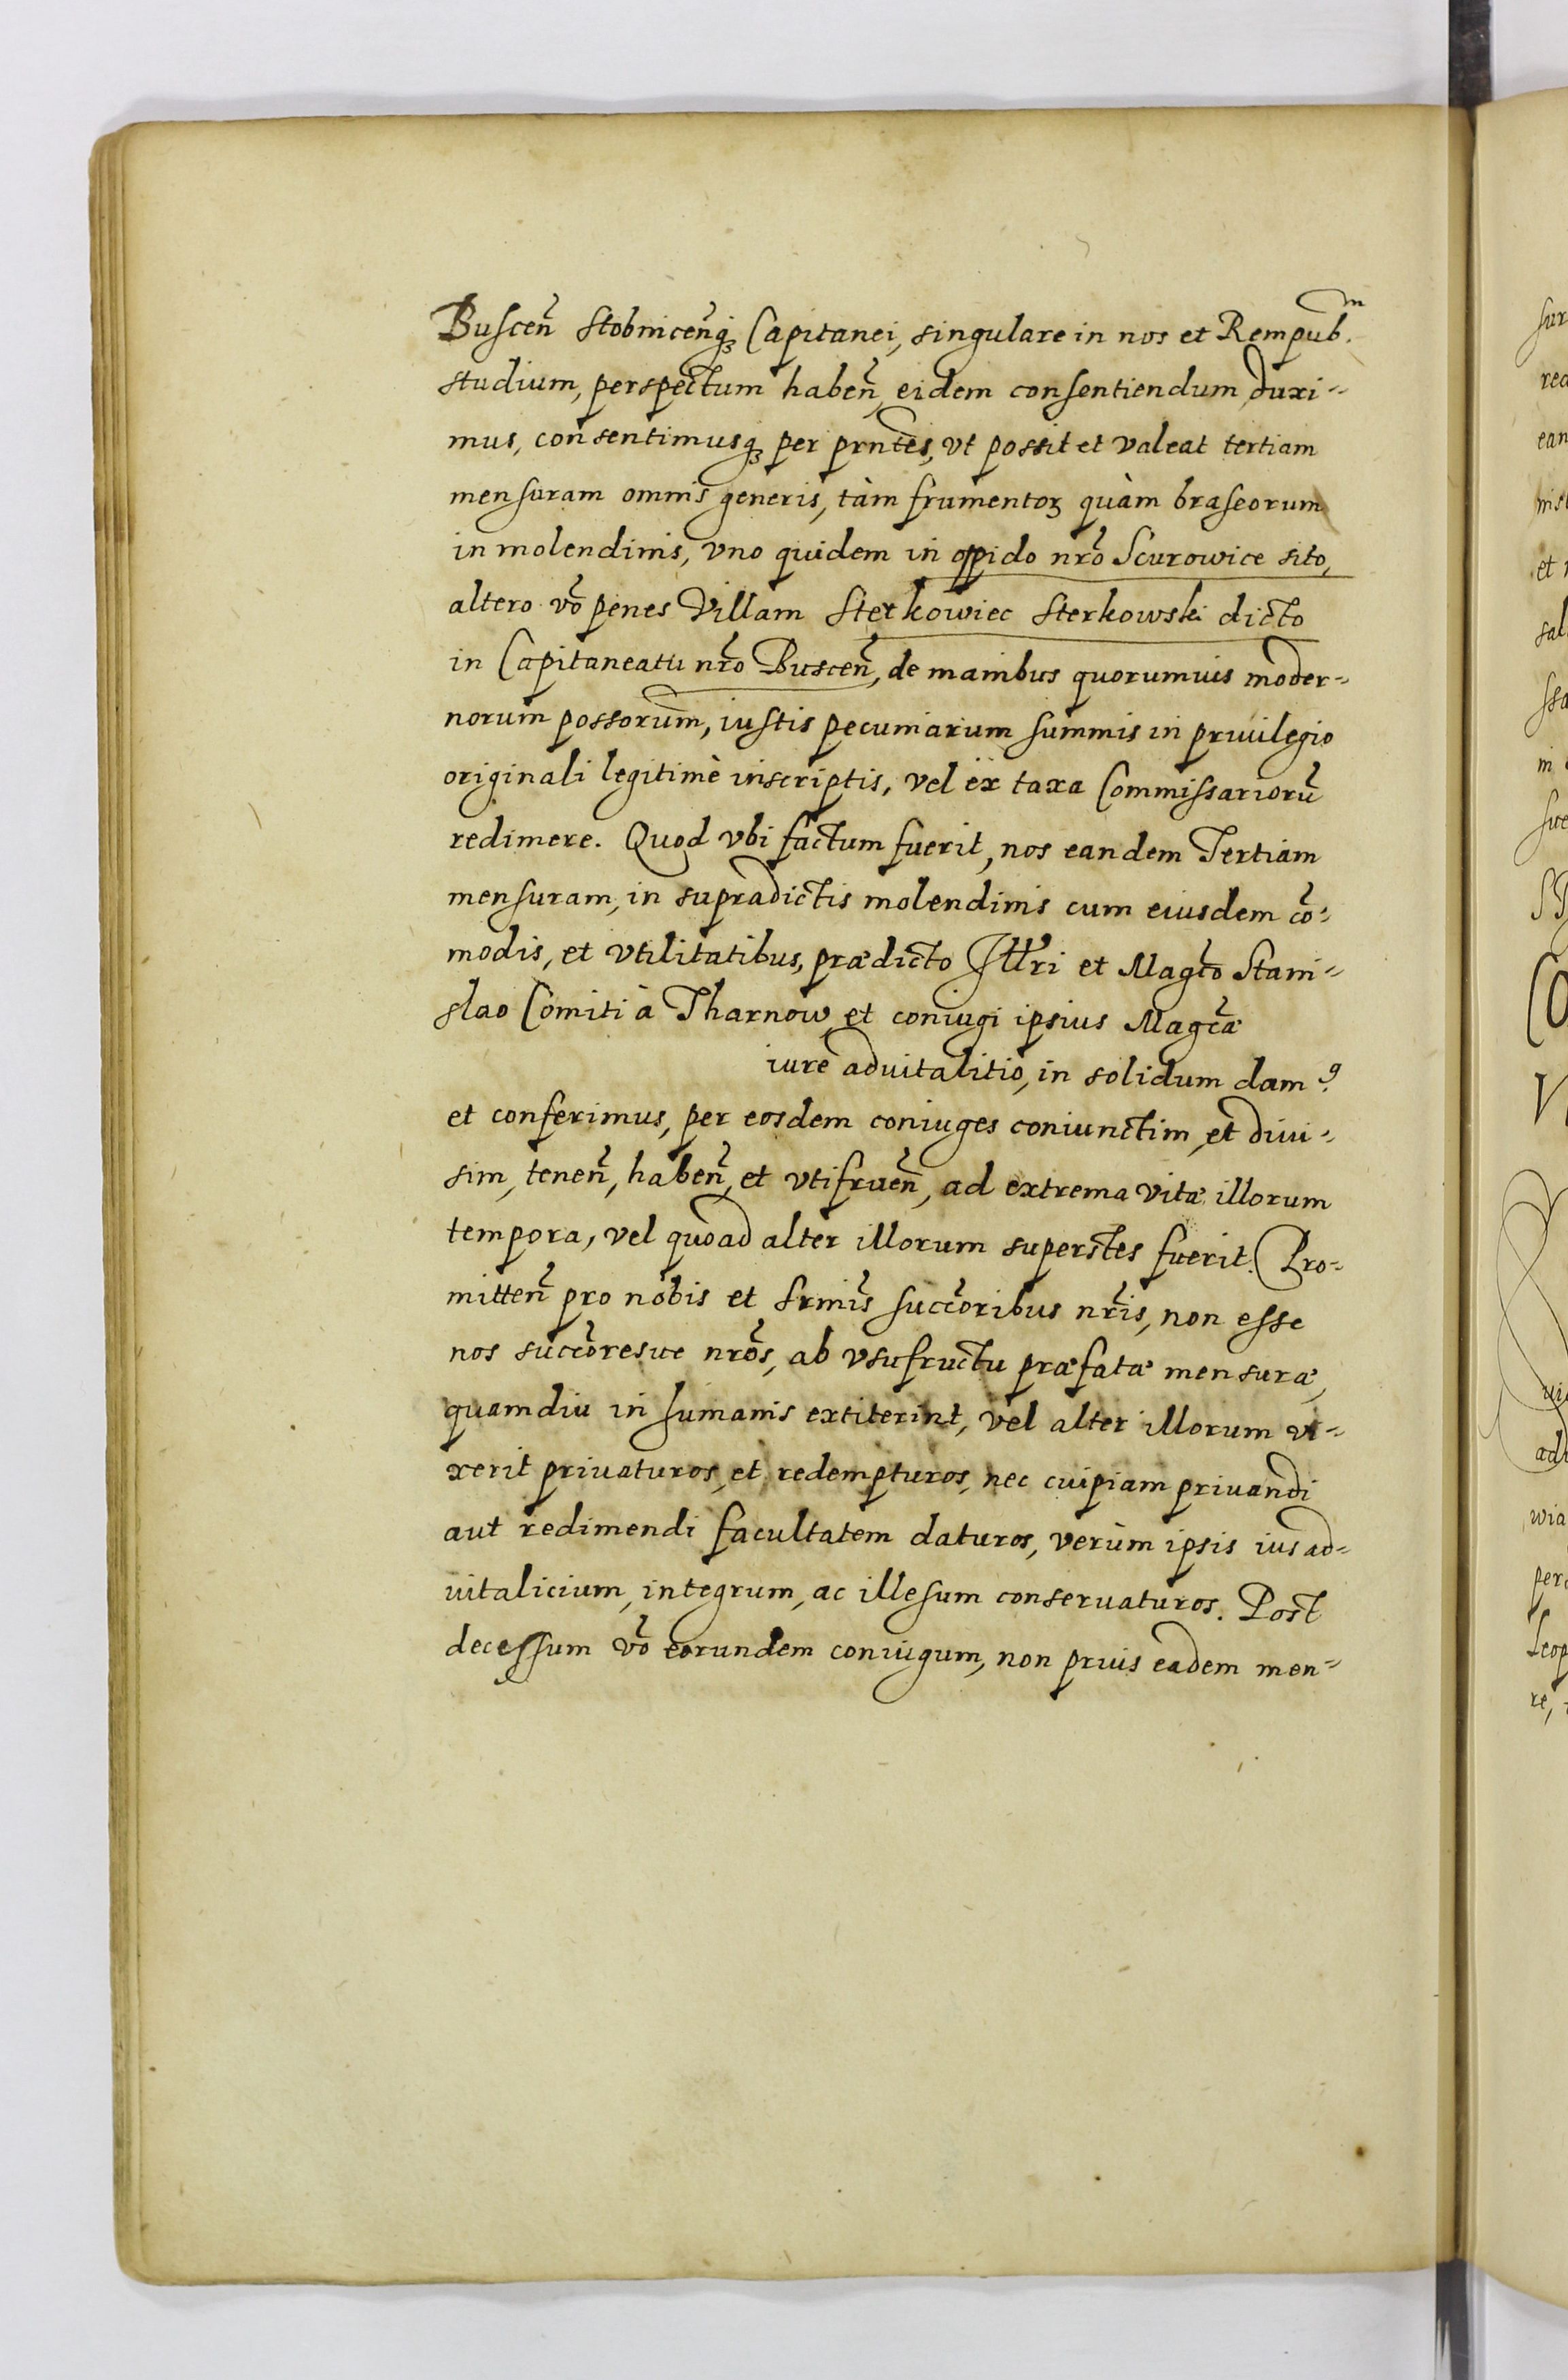 Buscen̄ Stobnicen̄qꝫ Capitanei, singulare in nos et Rempub.ᵐ
studium, perspectum haben̄, eidem consentiendum duxi-
mus, consentimusqꝫ per prn̄tes, vt possit et valeat tertiam
mensuram omnis generis, tàm frumentoꝝ quàm braseorum
in molendinis, vno quidem in oppido nr̄o Scurowice sito,
altero vō penes Villam Sterkowiec Sterkowski dicto
in Capitaneatu nr̄o Buscen̄, de manibus quorumuis moder-
norum possorum̄, iustis pecuniarum summis in priuilegio
originali legitimè inscriptis, vel ex taxa Commissariorū
redimere. Quod vbi factum fuerit, nos eandem Tertiam
mensuram, in supradictis molendinis cum eiusdem cō-
modis, et vtilitatibus, prædicto Illr̄i et Magc̄o Stani-
slao Comiti à Tharnow, et coniugi ipsius Magc̄æ
iure aduitalitio, in solidum damꝰ.
et conferimus, per eosdem coniuges coniunctim, et diui-
sim, tenen̄, haben̄, et vtifruen̄, ad extrema vitæ illorum
tempora, vel quoad alter illorum superstes fuerit. Pro-
mitten̄ pro nobis et Srm̄is succ̄oribus nr̄is, non esse
nos succ̄oresue nr̄os, ab vsufructu præfatæ mensuræ,
quamdiu in humanis extiterint, vel alter illorum vi-
xerit priuaturos, et redempturos, nec cuipiam priuandi
aut redimendi facultatem daturos, verùm ipsis ius ad-
uitalicium, integrum, ac illesum conseruaturos. Post
decessum vō eorundem coniugum, non prius eadem men-